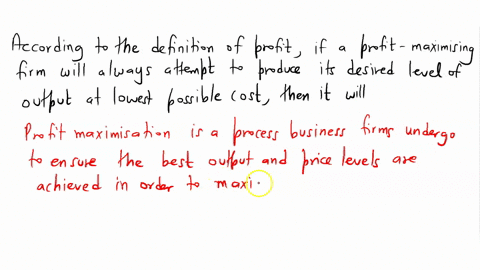 According to the definition of profit, if a profit-maximising
firm will always attempt to produce its desired level of
output at lowest possible cost, then it will
Profit maximisation is a process business firms undergo
to ensure the best output and price levels are
achieved in order to maxi